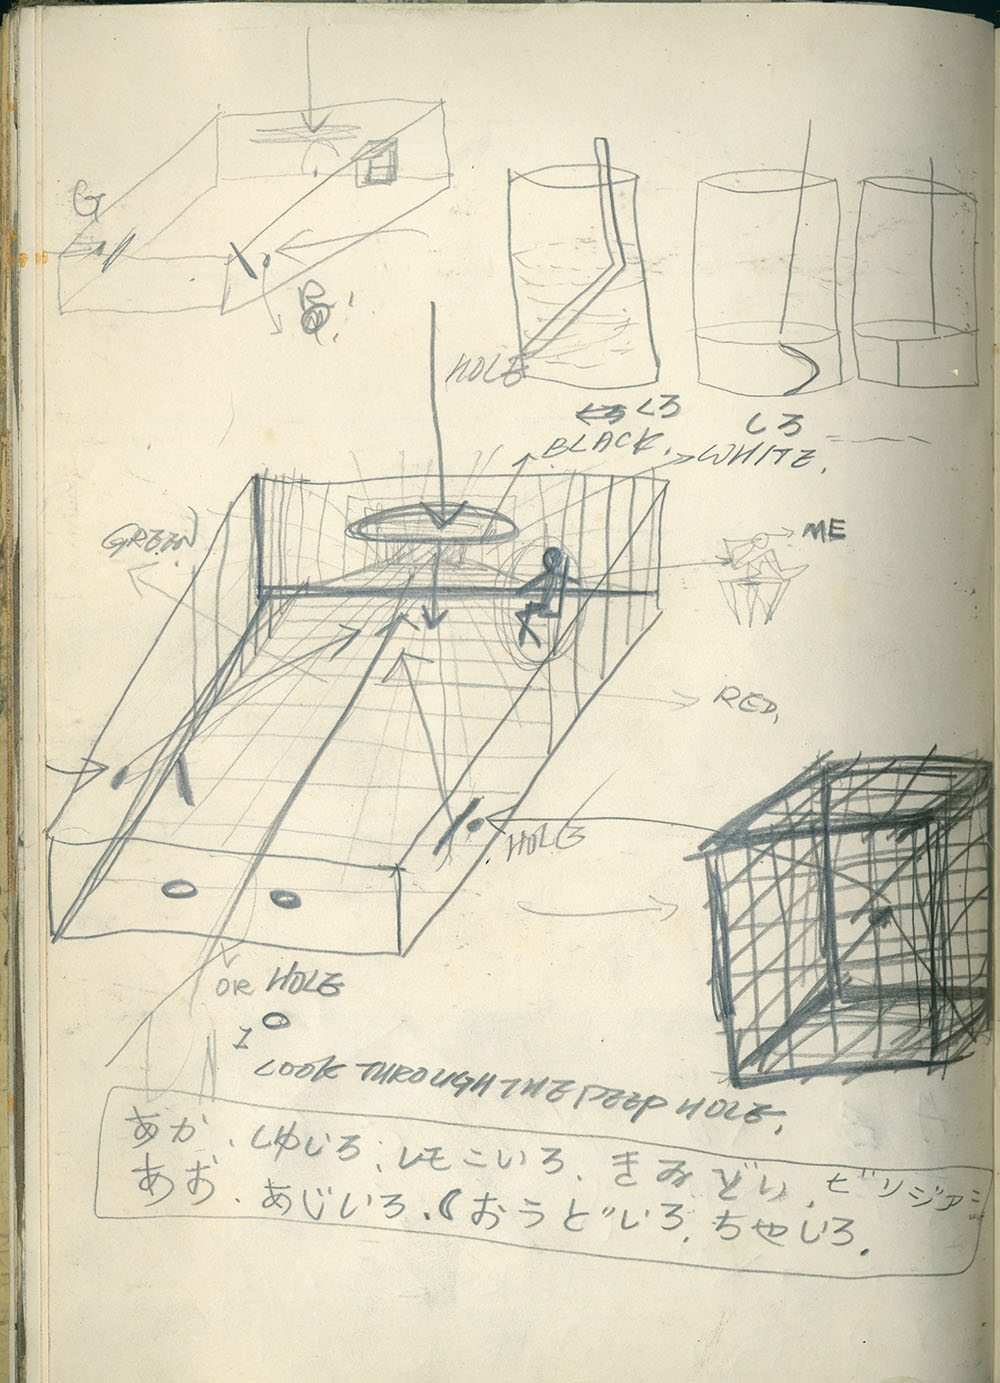 G
HOLE
くろ しろ
BLACK. WHITE.
GREEN
ME
RED.
HOLE
OR HOLE
I
LOOK THROUGH THE PEEP HOLE.
あか、しゅいろ、レモンいろ、きみどり、ビリジアン
あお、あいいろ、おうどいろ、ちゃいろ。